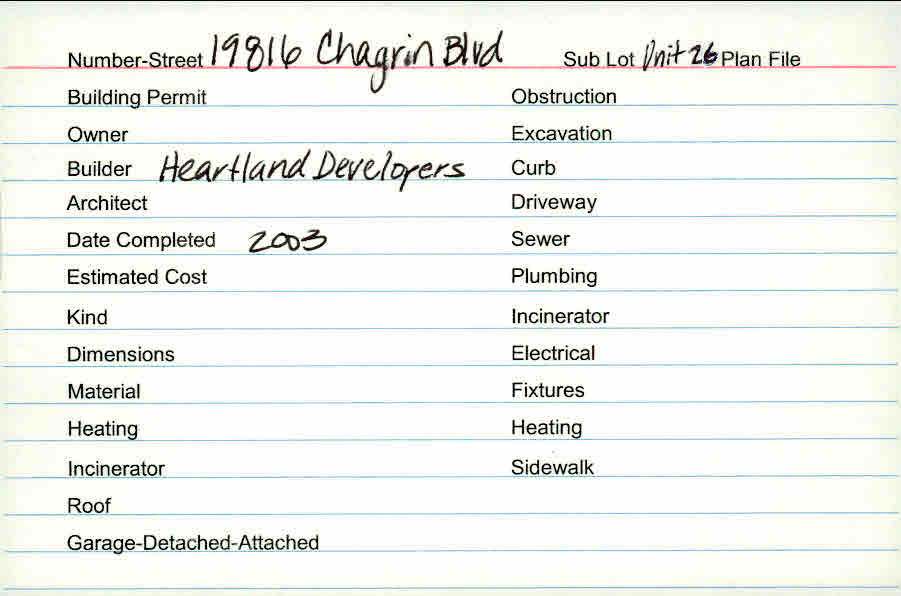 Number-Street 19816 Chagrin Blvd Sub Lot Unit 26 Plan File
Building Permit Obstruction
Owner Excavation
Builder Heartland Developers Curb
Architect Driveway
Date Completed 2003 Sewer
Estimated Cost Plumbing
Kind Incinerator
Dimensions Electrical
Material Fixtures
Heating Heating
Incinerator Sidewalk
Roof
Garage-Detached-Attached